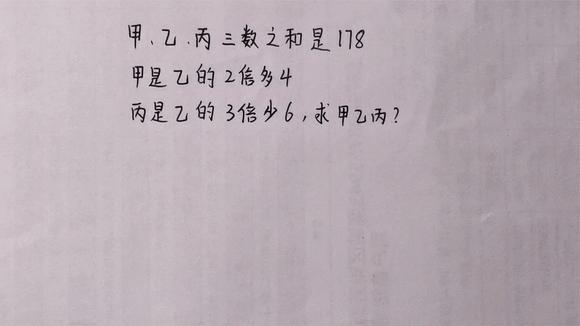 甲、乙、丙三数之和是178
甲是乙的2倍多4
丙是乙的3倍少6,求甲乙丙?